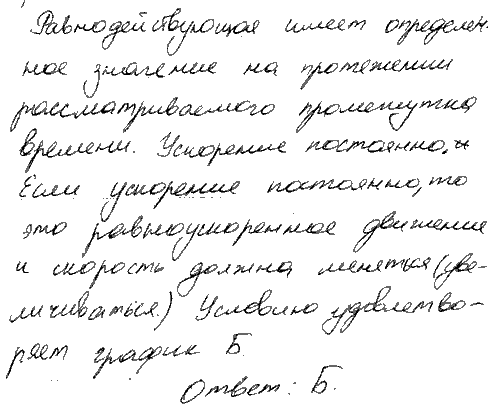 Равнодействующая имеет определен-
ное значение на протяжении
рассматриваемого промежутка
времени. Ускорение постоянно, и
Если ускорение постоянно, то
это равноускоренное движение
и скорость должна меняться (уве-
личиваться.) Условию удовлетво-
ряет график Б.
Ответ: Б.